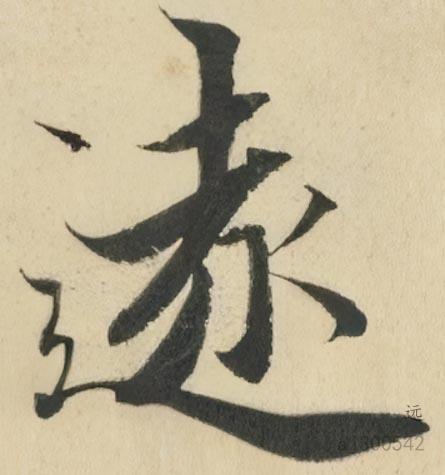 遠
远
a1300542